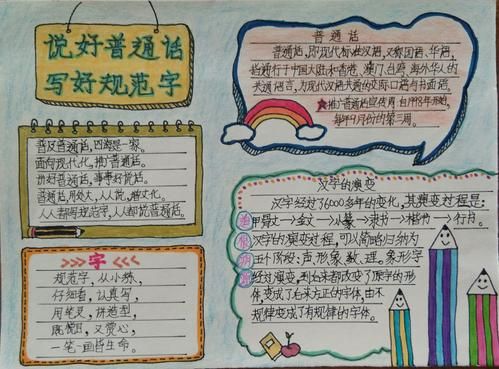 说好普通话
写好规范字
普通话
普通话,即现代标准汉语,又称国语、华语,
普通行于中国大陆和香港、澳门、台湾、海外华人的
共通语言,为现代汉语共通的交际口语与书面语。
推广普通话宣传周自1998年开始,
每年9月份的第三周。
普及普通话,四海是一家。
面向现代化,推广普通话。
讲好普通话,事事好话。
普通话,朋友多,人人说,增文化。
人人都写规范字,人人都说普通话。
字
规范字,从小练,
仔细看,认真写,
用笔灵,讲造型,
既悦目,又赏心,
一笔一画皆生命。
汉字的演变
汉字经过了6000多年的变化,其演变过程是:
甲骨文→金文→小篆→隶书→楷书→行书。
汉字的演变过程,可以简略归纳为
五个阶段:声、形、象、数、理。象形字
经过演变,到后来都改变了原字的形
体,变成了后来方正的字体,由不
规律变成了有规律的字体。